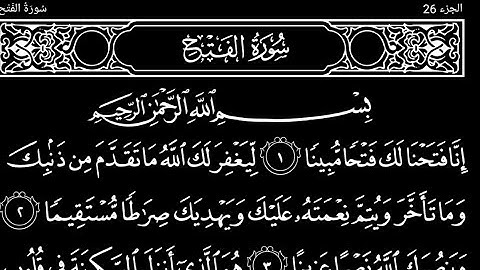 الجزء 26 سُورَةُ الفَتْح
سُورَةُ الفَتْحِ
بِسْمِ اللَّهِ الرَّحْمَٰنِ الرَّحِيمِ
إِنَّا فَتَحْنَا لَكَ فَتْحًا مُّبِينًا ١ لِّيَغْفِرَ لَكَ اللَّهُ مَا تَقَدَّمَ مِن ذَنۢبِكَ
وَمَا تَأَخَّرَ وَيُتِمَّ نِعْمَتَهُۥ عَلَيْكَ وَيَهْدِيَكَ صِرَٰطًا مُّسْتَقِيمًا ٢
وَيَنصُرَكَ اللَّهُ نَصْرًا عَزِيزًا ٣ هُوَ الَّذِىٓ أَنزَلَ السَّكِينَةَ فِى قُلُوبِ